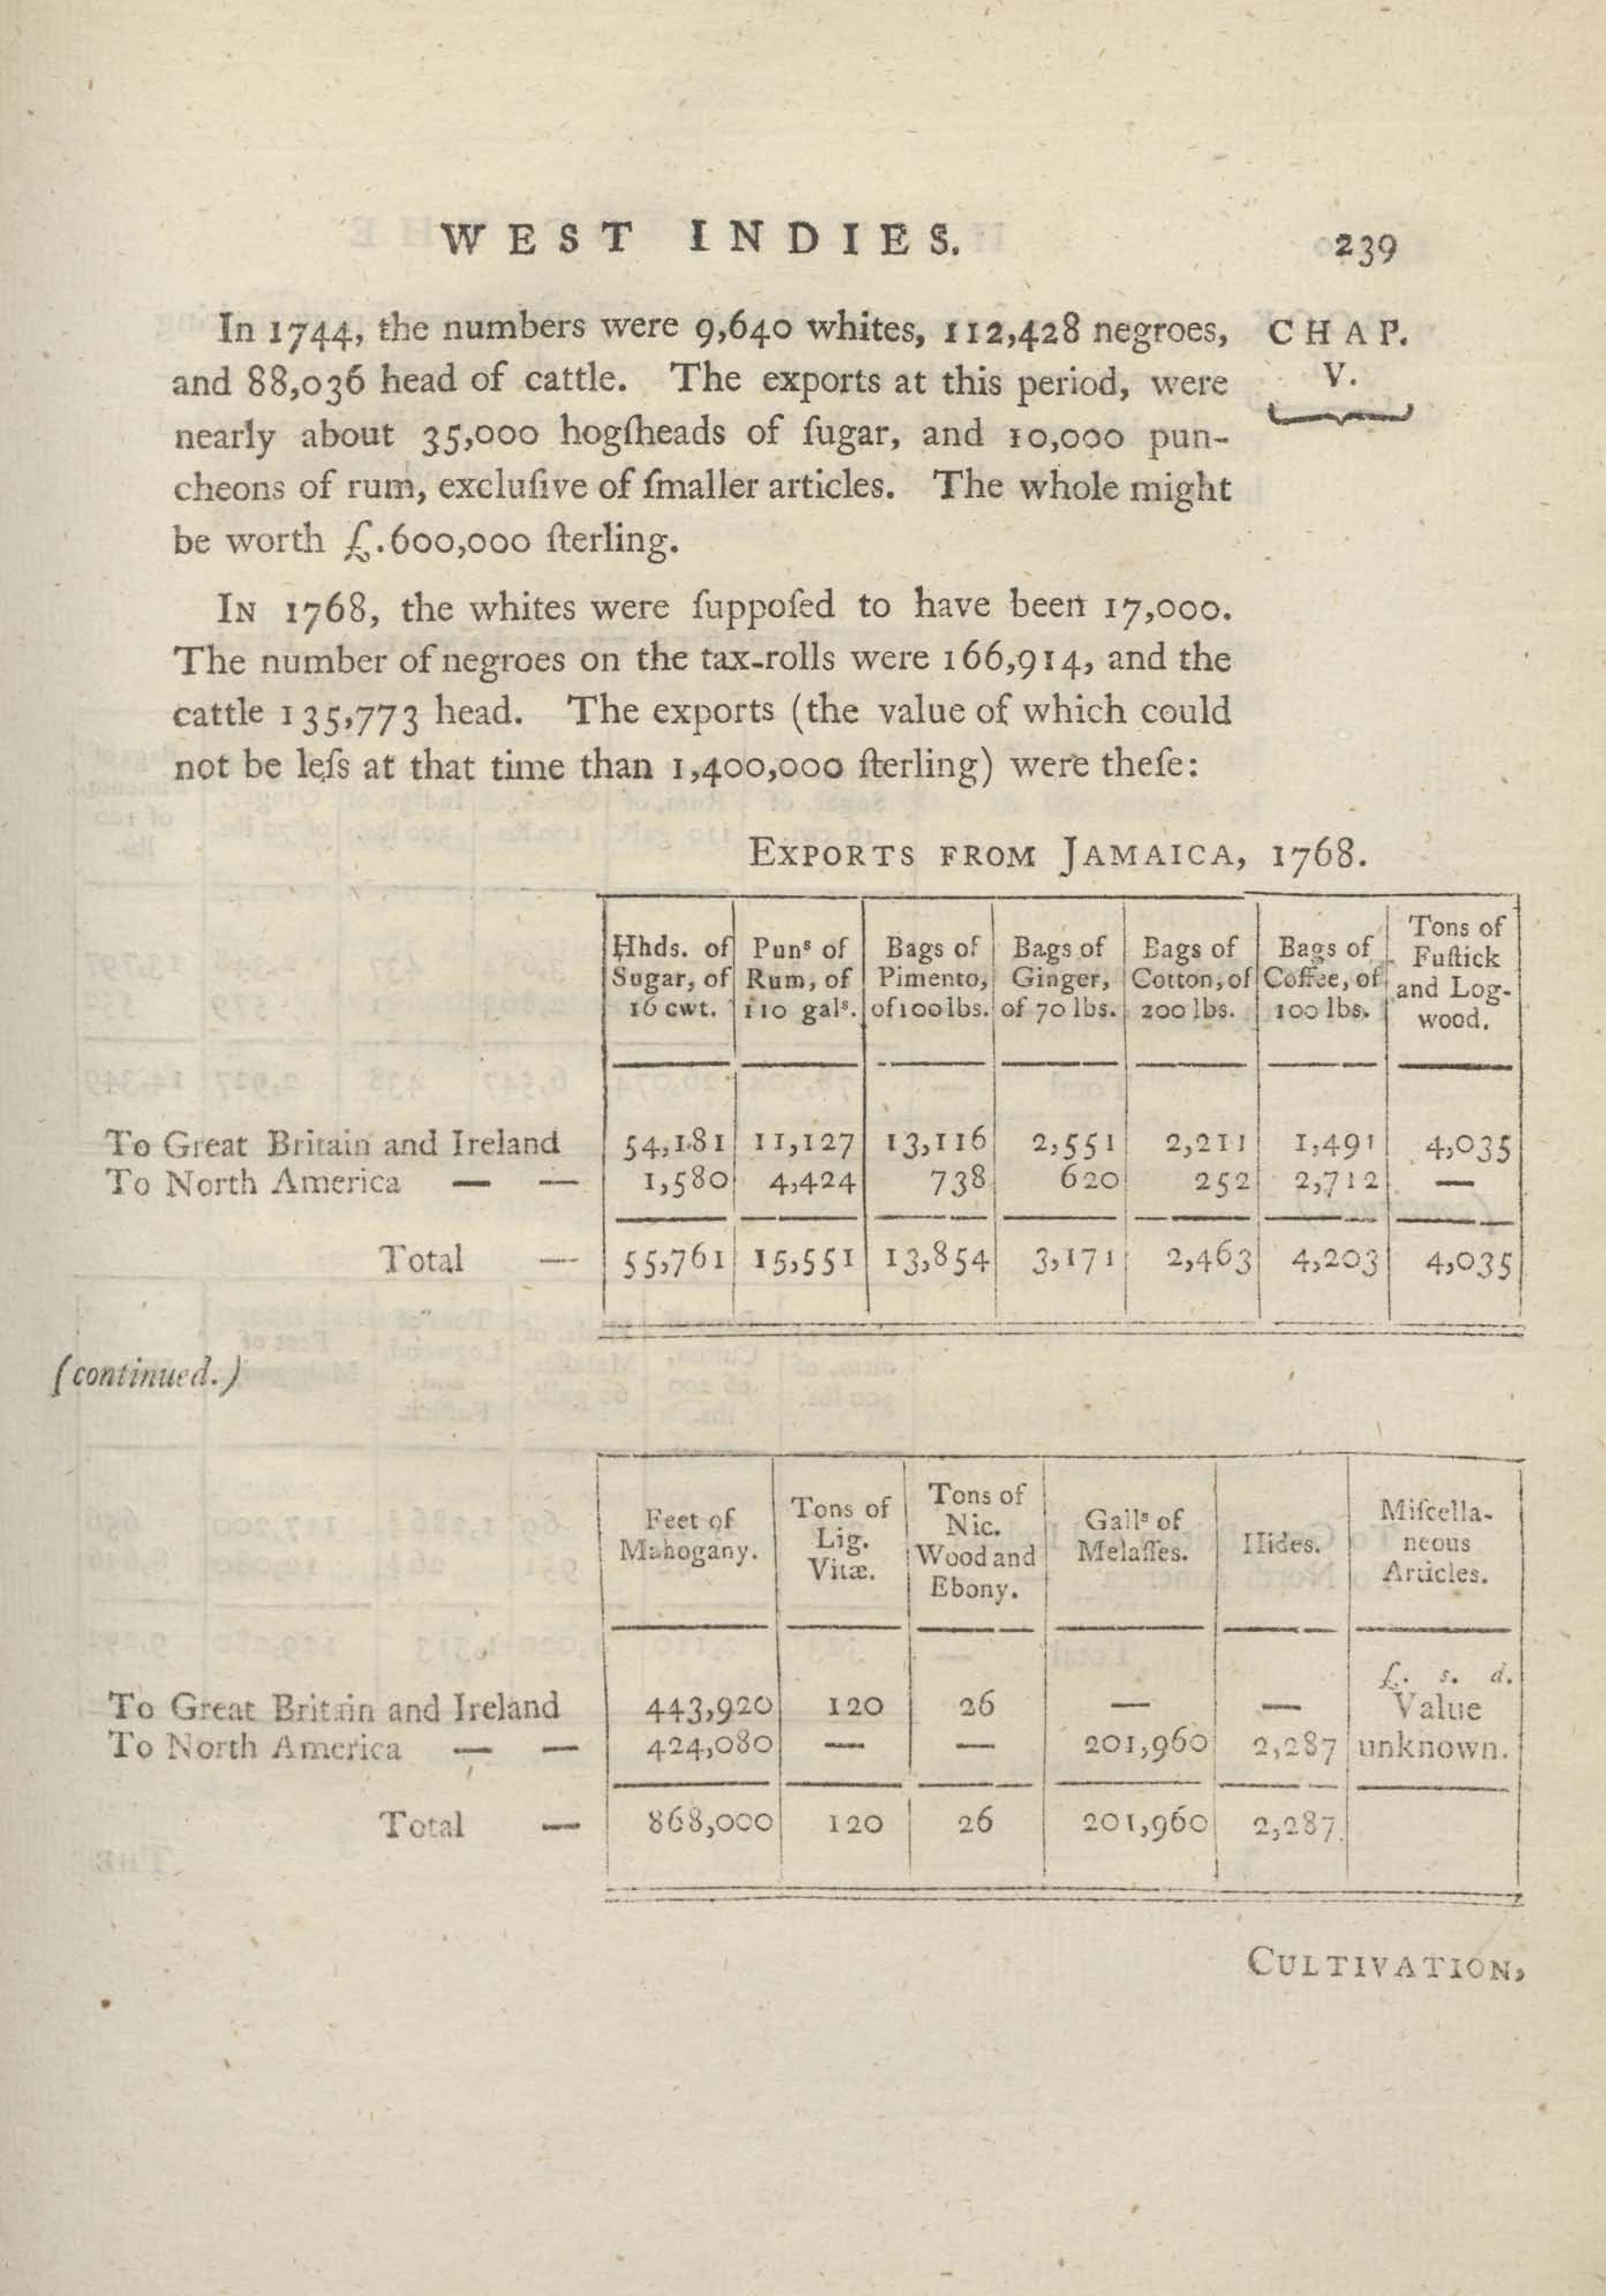 WEST INDIES. 239
In 1744, the numbers were 9,640 whites, 112,428 negroes,
CHAP.
V.
and 88,036 head of cattle. The exports at this period, were
nearly about 35,000 hogſheads of ſugar, and 10,000 pun-
cheons of rum, excluſive of ſmaller articles. The whole might
be worth £.600,000 ſterling.
In 1768, the whites were ſuppoſed to have been 17,000.
The number of negroes on the tax-rolls were 166,914, and the
cattle 135,773 head. The exports (the value of which could
not be leſs at that time than 1,400,000 ſterling) were theſe:
Exports from Jamaica, 1768.
Hhds. of Sugar, of 16 cwt. | Puns of Rum, of 110 gals. | Bags of Pimento, of 100 lbs. | Bags of Ginger, of 70 lbs. | Bags of Cotton, of 200 lbs. | Bags of Coffee, of 100 lbs. | Tons of Fuſtick and Log-wood.
To Great Britain and Ireland 54,181 11,127 13,116 2,551 2,211 1,491 4,035
To North America — — 1,580 4,424 738 620 252 2,712 —
Total — 55,761 15,551 13,854 3,171 2,463 4,203 4,035
(continued.)
Feet of Mahogany. | Tons of Lig. Vitæ. | Tons of Nic. Wood and Ebony. | Galls of Melaſſes. | Hides. | Miſcella-neous Articles.
£. s. d.
To Great Britain and Ireland 443,920 120 26 — — Value
To North America — — 424,080 — — 201,960 2,287 unknown.
Total — 868,000 120 26 201,960 2,287
Cultivation,